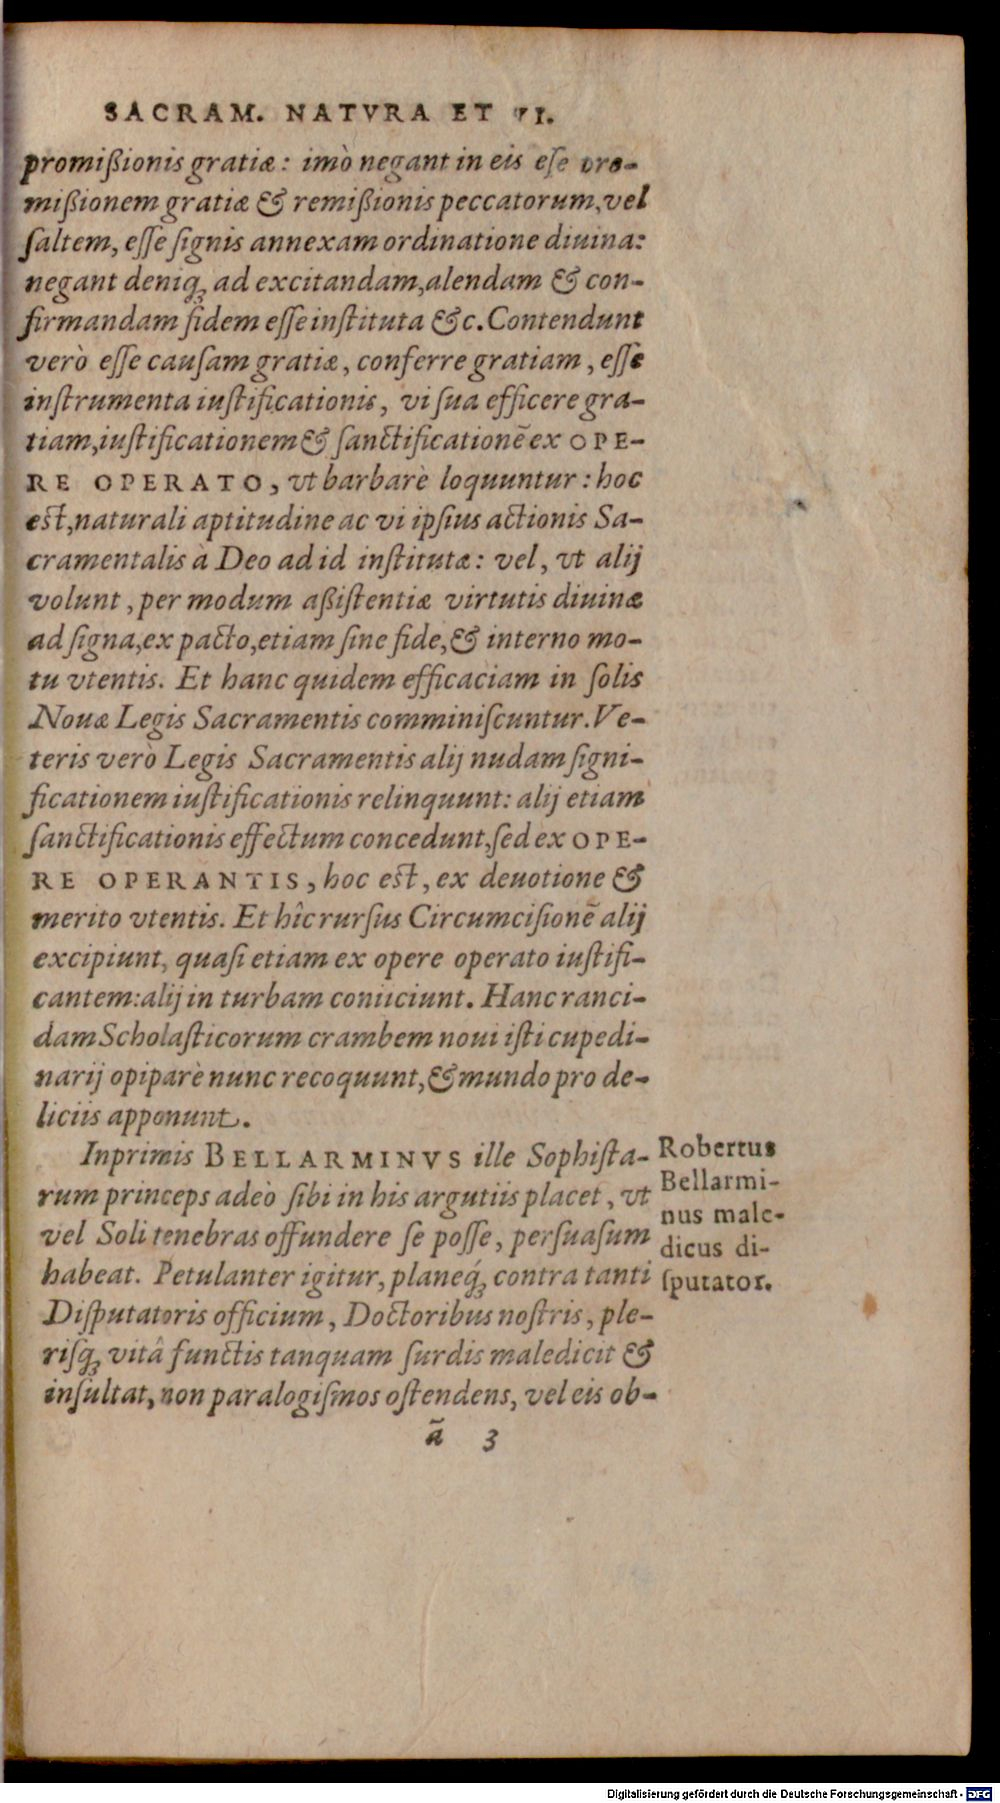 SACRAM. NATVRA ET VI.
promißionis gratiæ: imò negant in eis eſe pro-
mißionem gratiæ & remißionis peccatorum, vel
ſaltem, eſſe ſignis annexam ordinatione diuina:
negant deniq́; ad excitandam, alendam & con-
firmandam fidem eſſe inſtituta &c. Contendunt
verò eſſe cauſam gratiæ, conferre gratiam, eſſe
inſtrumenta iuſtificationis, vi ſua efficere gra-
tiam, iuſtificationem & ſanctificationē ex OPE-
RE OPERATO, vt barbarè loquuntur: hoc
eſt, naturali aptitudine ac vi ipſius actionis Sa-
cramentalis à Deo ad id inſtitutæ: vel, vt alij
volunt, per modum aßiſtentiæ virtutis diuinæ
ad ſigna, ex pacto, etiam ſine fide, & interno mo-
tu vtentis. Et hanc quidem efficaciam in ſolis
Nouæ Legis Sacramentis comminiſcuntur. Ve-
teris verò Legis Sacramentis alij nudam ſigni-
ficationem iuſtificationis relinquunt: alij etiam
ſanctificationis effectum concedunt, ſed ex OPE-
RE OPERANTIS, hoc eſt, ex deuotione &
merito vtentis. Et hîc rurſus Circumciſionē alij
excipiunt, quaſi etiam ex opere operato iuſtifi-
cantem: alij in turbam coniiciunt. Hanc ranci-
dam Scholaſticorum crambem noui iſti cupedi-
narij opiparè nunc recoquunt, & mundo pro de-
liciis apponunt.
Inprimis BELLARMINVS ille Sophiſta-
rum princeps adeò ſibi in his argutiis placet, vt
vel Soli tenebras offundere ſe poſſe, perſuaſum
habeat. Petulanter igitur, planeq́; contra tanti
Diſputatoris officium, Doctoribus noſtris, ple-
riſq́; vitâ functis tanquam ſurdis maledicit &
inſultat, non paralogiſmos oſtendens, vel eis ob-
ã 3
Robertus
Bellarmi-
nus male-
dicus di-
ſputator.
Digitalisierung gefördert durch die Deutsche Forschungsgemeinschaft - DFG